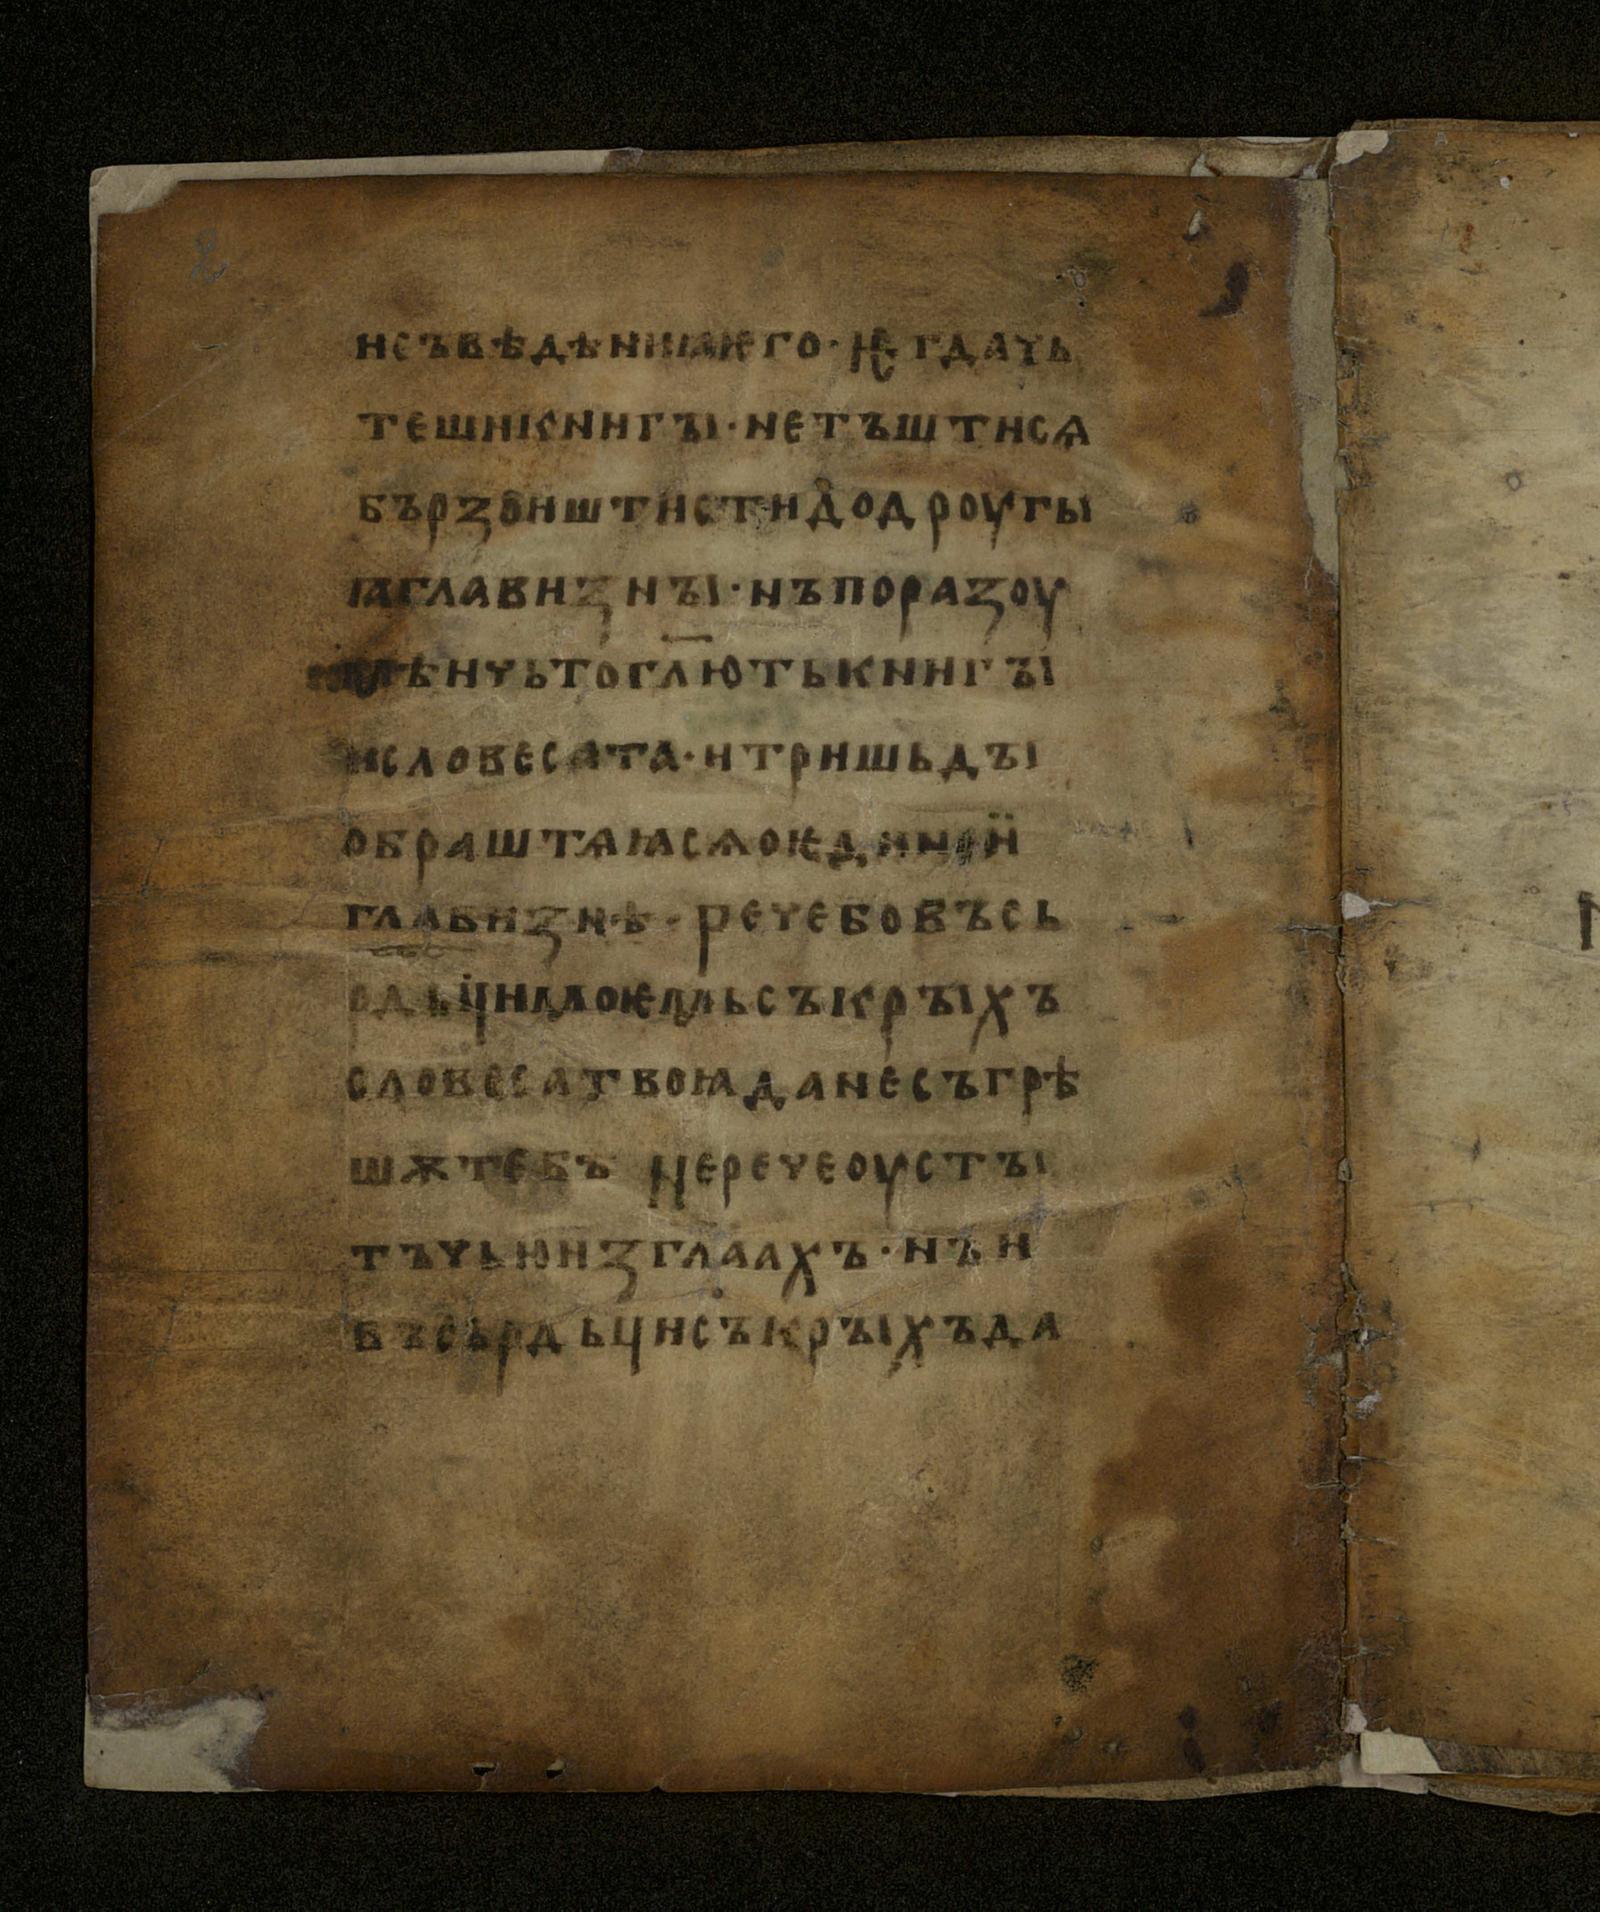 2
исъвѣдѣниꙗѥго· ѥгдачь
тешикнигꙑ· нетъштисѧ
бързоиштистидодроугы
ꙗглавизнꙑ· нъпоразоу
мѣичьтогл҃ютькнигꙑ
исловесата· итришьдꙑ
обраштѧꙗсѧоѥдинои
главизнѣ· речебовъсь
рдьцимоѥмьсъкрꙑхъ
словесатвоꙗданесъгрѣ
шѫтебѣ неречеоустꙑ
тъчьюизглаахъ· нъи
въсьрдьцисъкрꙑхъда